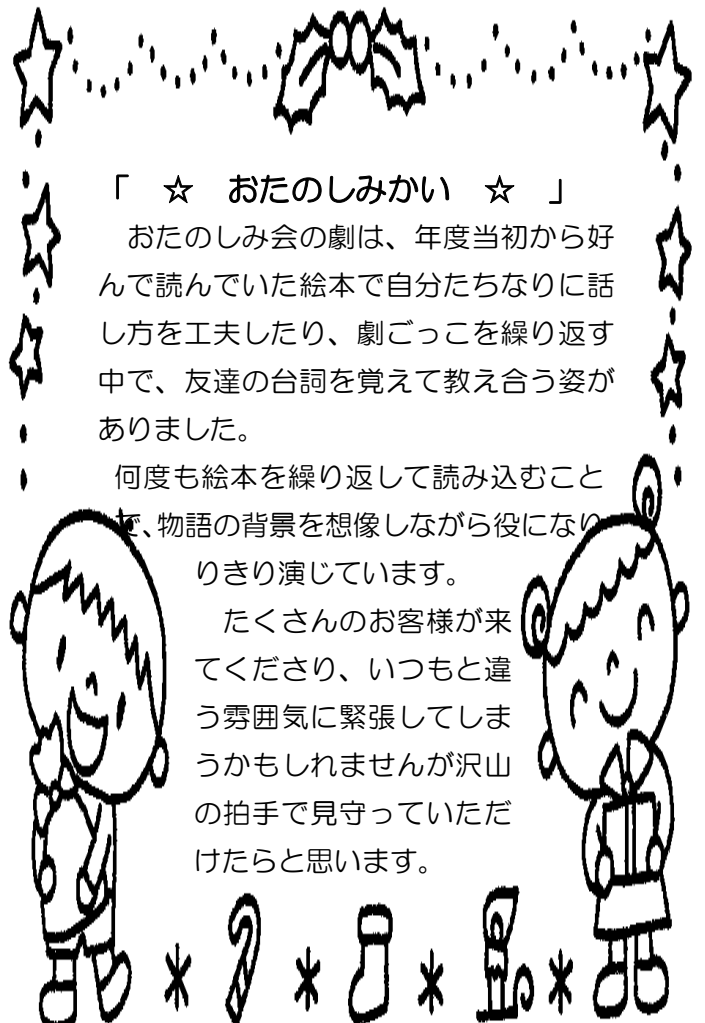 「　☆　おたのしみかい　☆　」
おたのしみ会の劇は、年度当初から好
んで読んでいた絵本で自分たちなりに話
し方を工夫したり、劇ごっこを繰り返す
中で、友達の台詞を覚えて教え合う姿が
ありました。
何度も絵本を繰り返して読み込むこと
で、物語の背景を想像しながら役になり
りきり演じています。
たくさんのお客様が来
てくださり、いつもと違
う雰囲気に緊張してしま
うかもしれませんが沢山
の拍手で見守っていただ
けたらと思います。